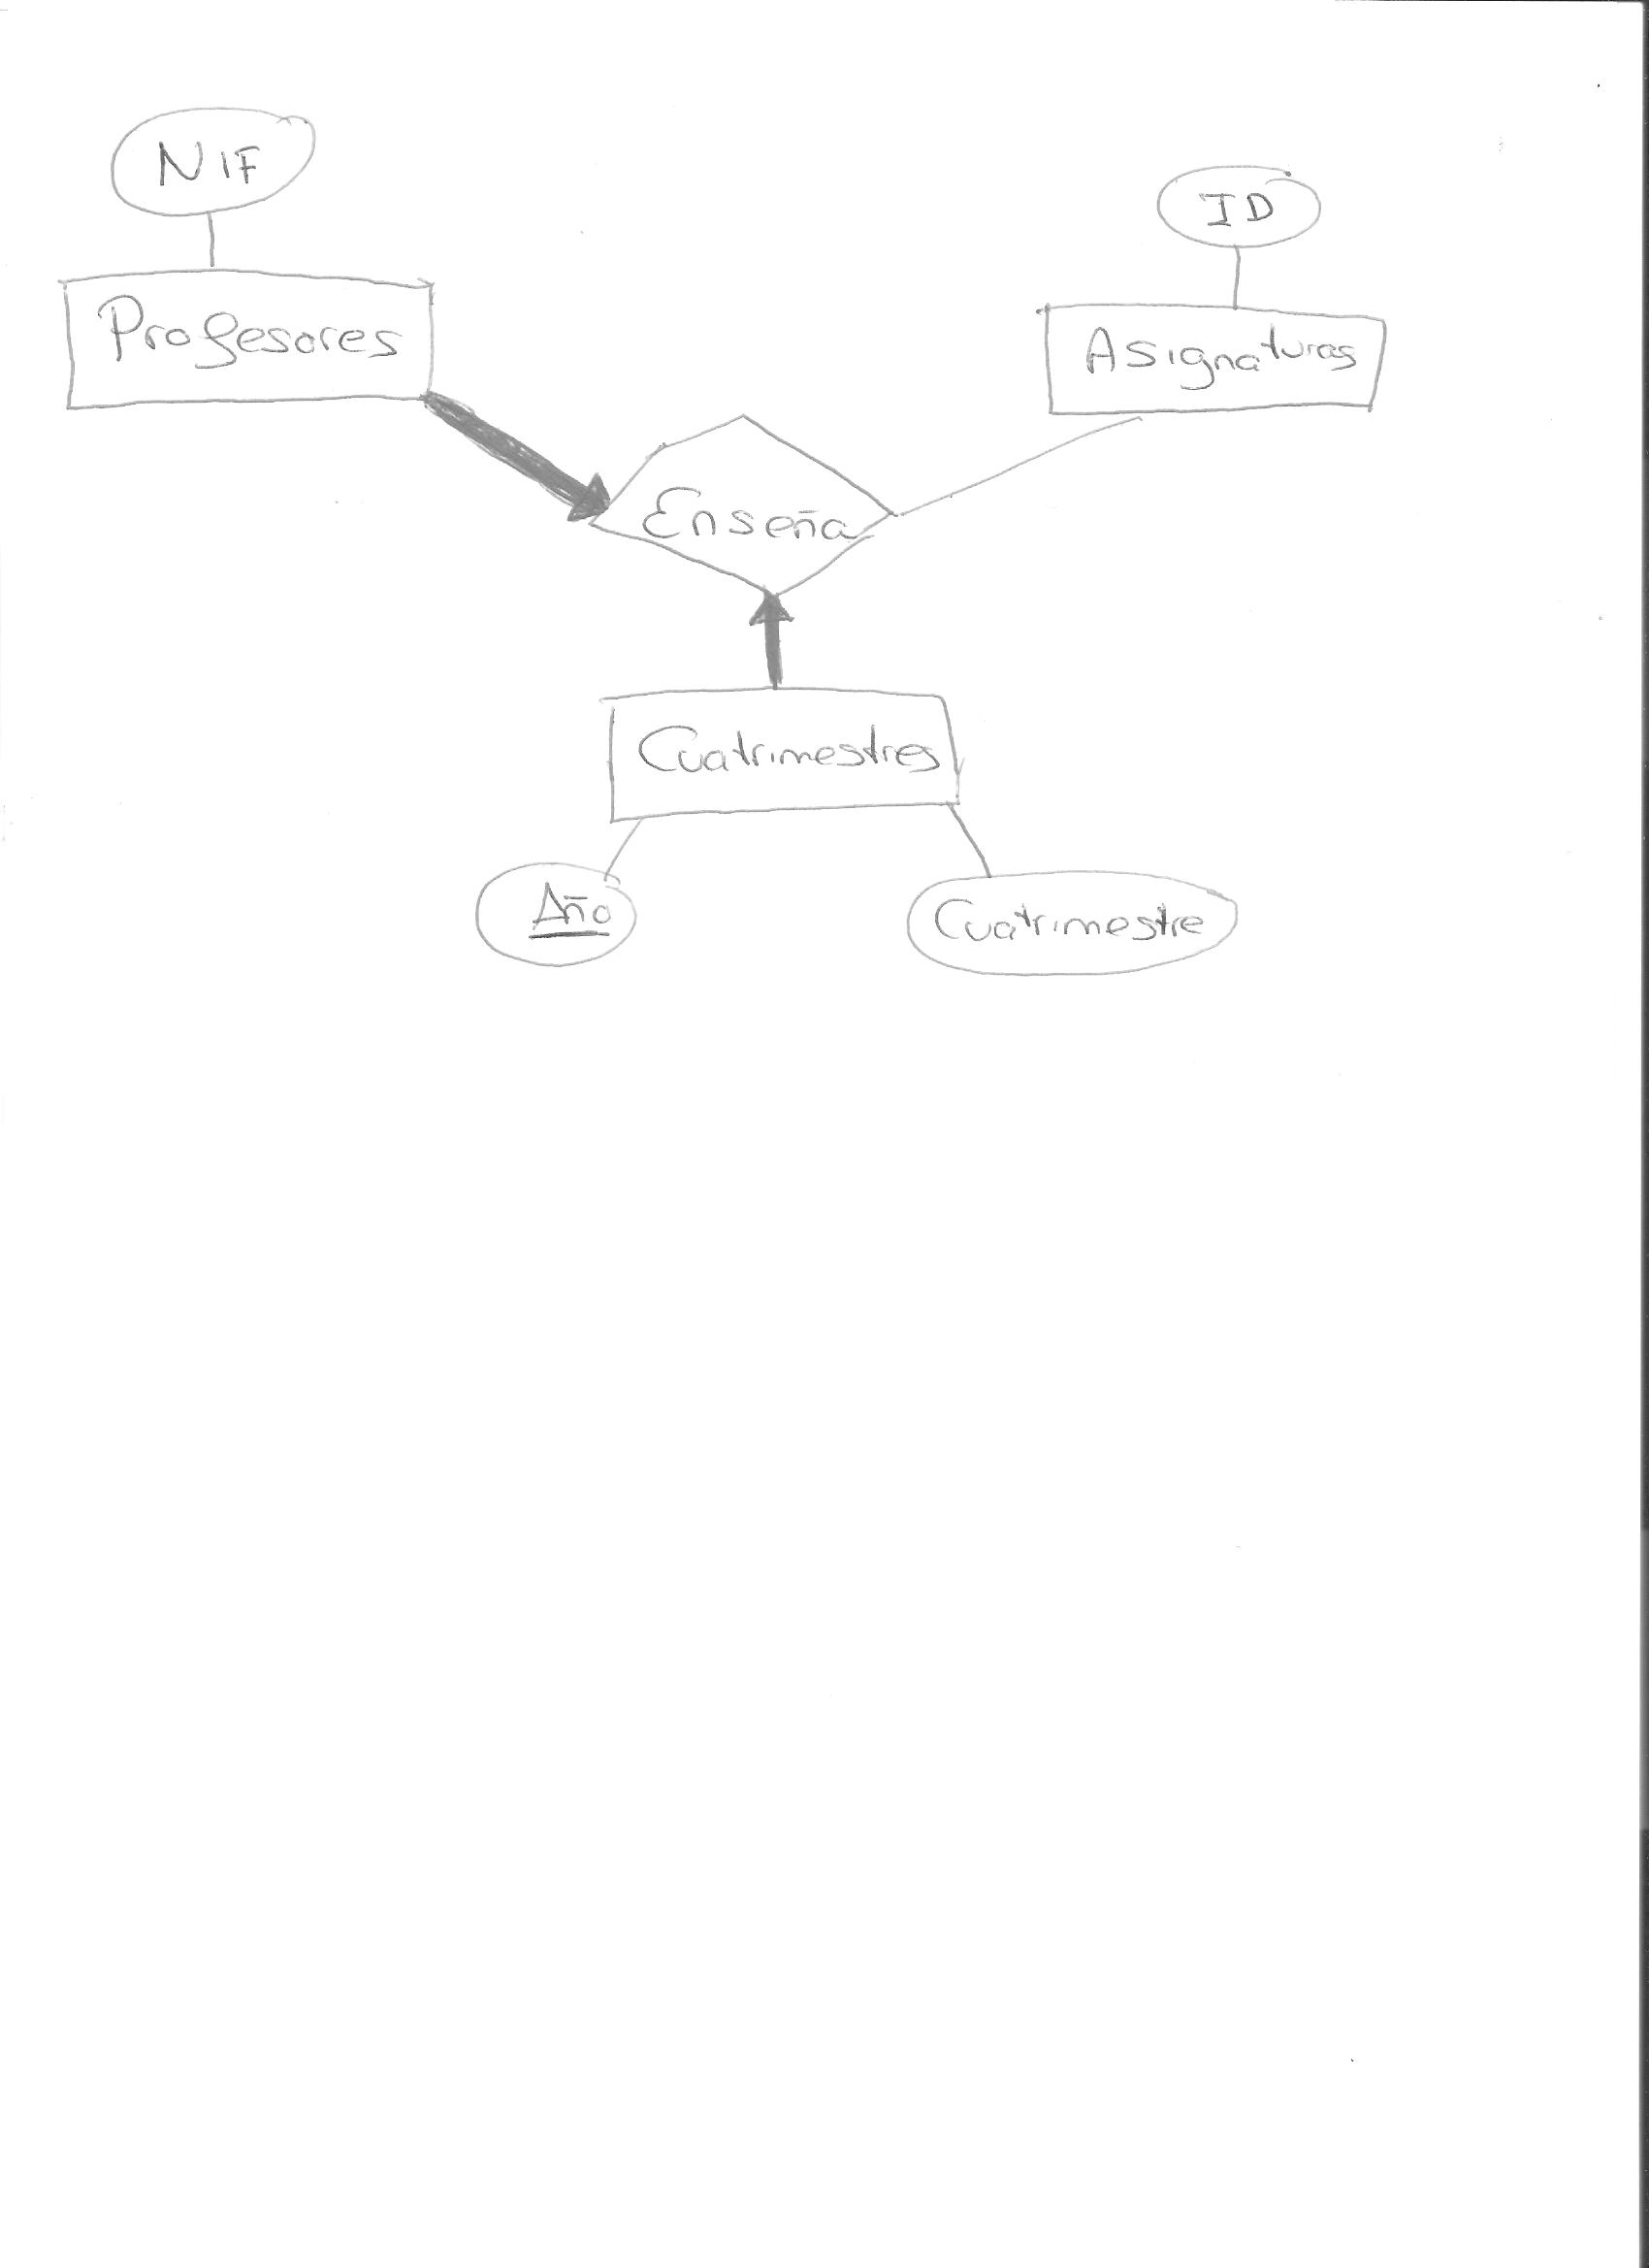 NIF
ID
Profesores
Asignaturas
Enseña
Cuatrimestres
Año
Cuatrimestre